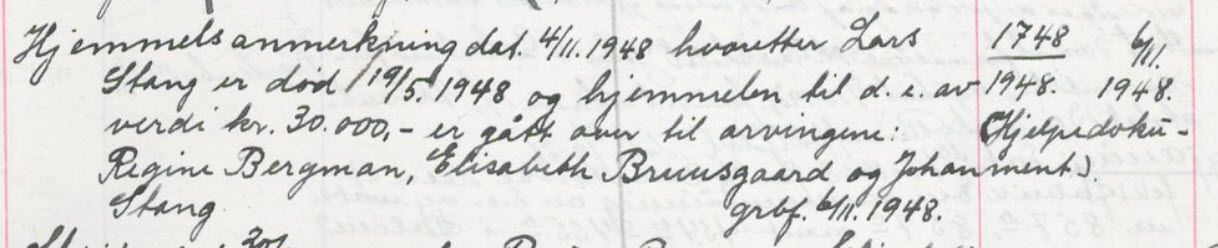 Hjemmelsanmerkning dat. 4/11. 1948 hvoretter Lars 1748 6/11.
Stang er død 19/5. 1948 og hjemmelen til d. e. av 1948. 1948.
verdi kr. 30.000,- er gått over til arvingene: (Hjelpedoku-
Regine Bergman, Elisabeth Bruusgaard og Johan ment).
Stang grbf. 6/11. 1948.